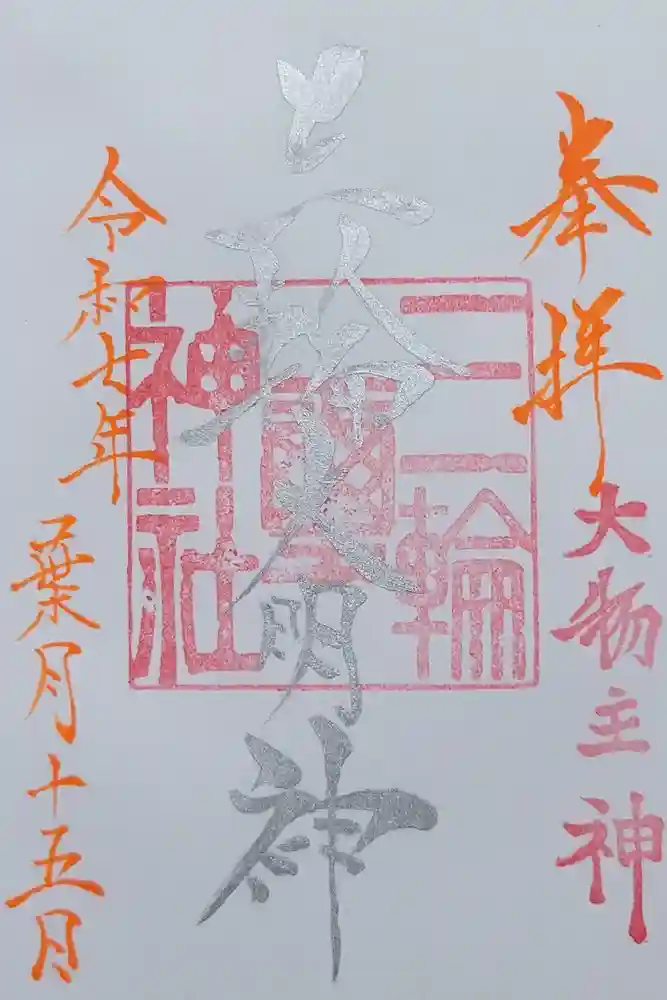 奉拝
大物主神
三輪大明神
三輪
神社
令和七年
葉月十五日